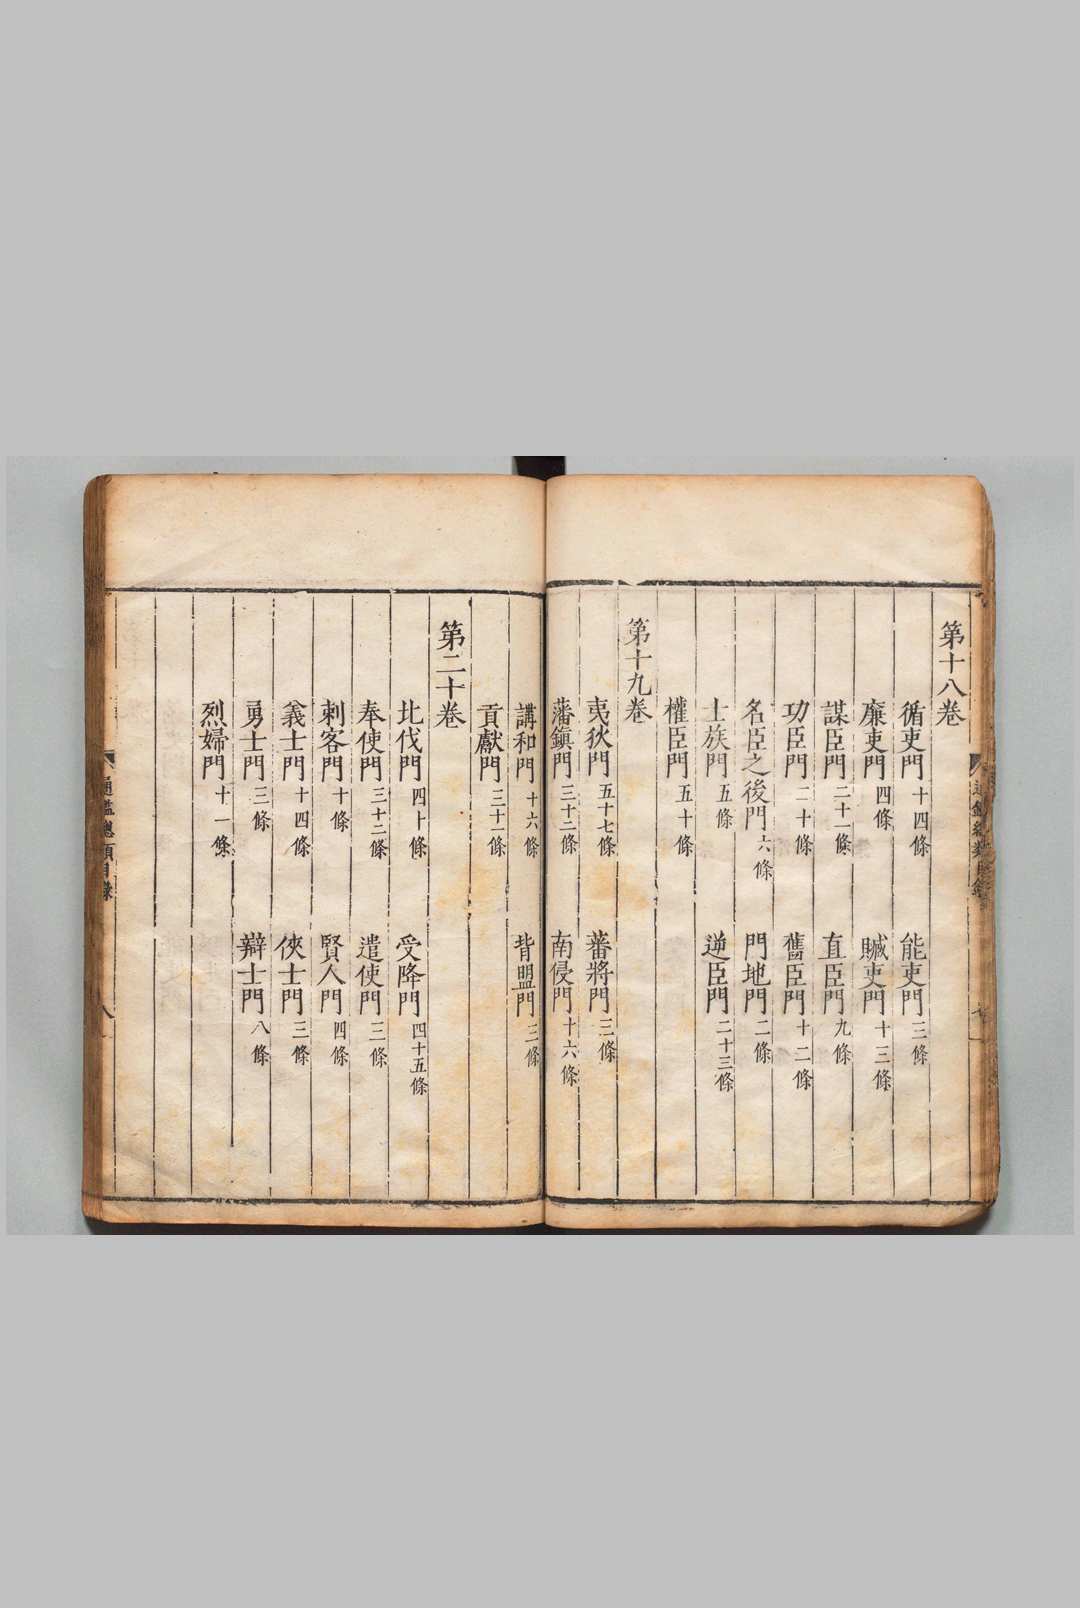 第十八卷
循吏門 十四條 能吏門 三條
廉吏門 四條 贓吏門 十三條
謀臣門 二十一條 直臣門 九條
功臣門 二十條 舊臣門 十二條
名臣之後門 六條 門地門 二條
士族門 五條 逆臣門 二十三條
權臣門 五十條
第十九卷
夷狄門 五十七條 蕃將門 三條
藩鎮門 三十二條 南侵門 十六條
講和門 十六條 背盟門 三條
貢獻門 三十一條
第二十卷
北伐門 四十條 受降門 四十五條
奉使門 三十二條 遣使門 三條
刺客門 十條 賢人門 四條
義士門 十四條 俠士門 三條
勇士門 三條 辯士門 八條
烈婦門 十一條
通鑑總類目錄 八